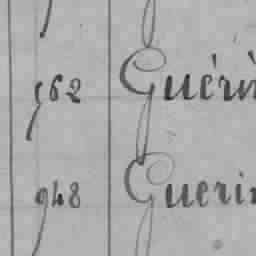 562 Guéri
948 Gueri